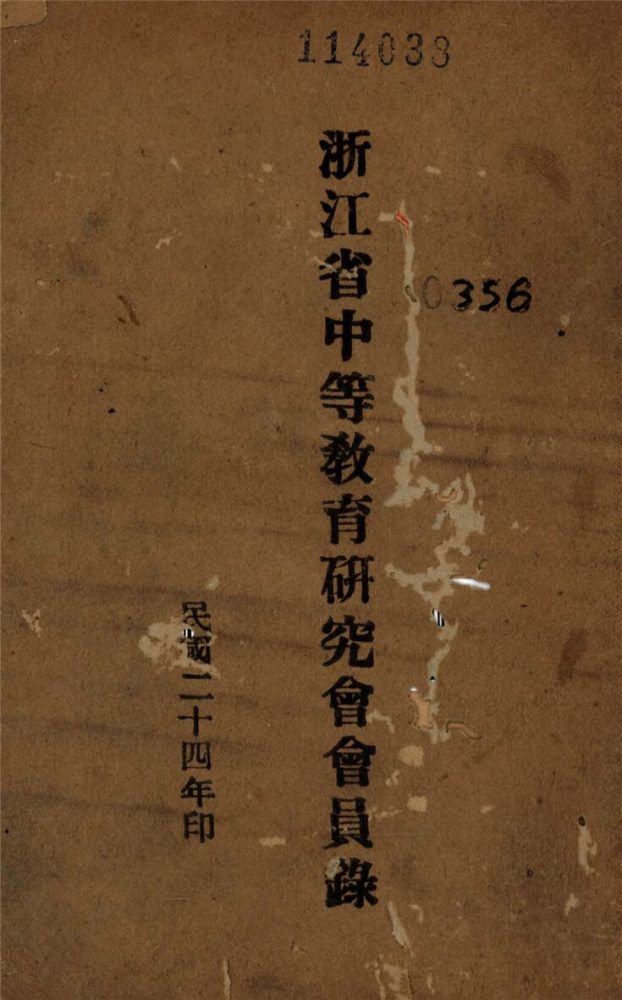 114038
浙江省中等教育研究會會員錄
0356
民國二十四年印